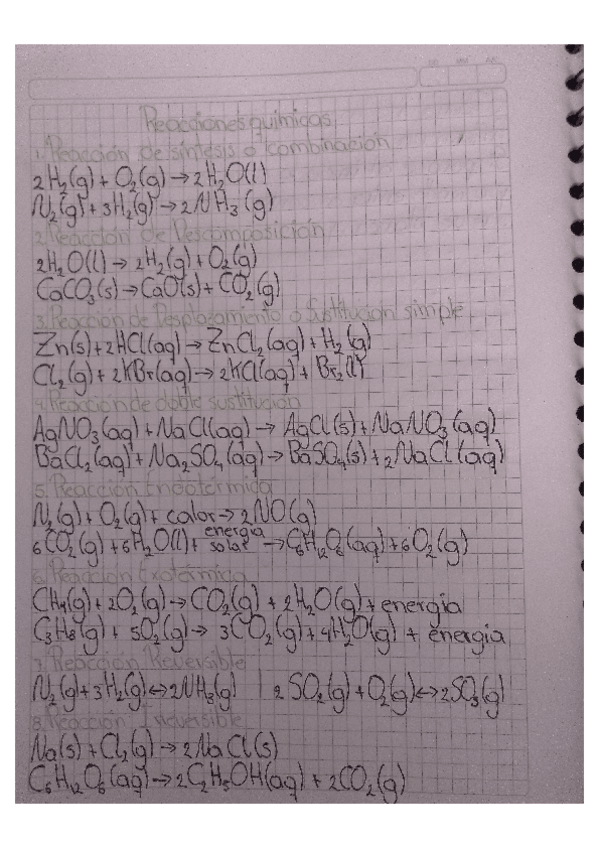 Reacciones químicas
1. Reacción de síntesis o combinación
2H₂(g) + O₂(g) → 2H₂O(l)
N₂(g) + 3H₂(g) → 2NH₃(g)
2. Reacción de Descomposición
2H₂O(l) → 2H₂(g) + O₂(g)
CaCO₃(s) → CaO(s) + CO₂(g)
3. Reacción de Desplazamiento o Sustitución simple
Zn(s) + 2HCl(aq) → ZnCl₂(aq) + H₂(g)
Cl₂(g) + 2KBr(aq) → 2KCl(aq) + Br₂(l)
4. Reacción de doble sustitución
AgNO₃(aq) + NaCl(aq) → AgCl(s) + NaNO₃(aq)
BaCl₂(aq) + Na₂SO₄(aq) → BaSO₄(s) + 2NaCl(aq)
5. Reacción Endotérmica
N₂(g) + O₂(g) + calor → 2NO(g)
6CO₂(g) + 6H₂O(l) + energía solar → C₆H₁₂O₆(aq) + 6O₂(g)
6. Reacción Exotérmica
CH₄(g) + 2O₂(g) → CO₂(g) + 2H₂O(g) + energía
C₃H₈(g) + 5O₂(g) → 3CO₂(g) + 4H₂O(g) + energía
7. Reacción Reversible
N₂(g) + 3H₂(g) ↔ 2NH₃(g) | 2SO₂(g) + O₂(g) ↔ 2SO₃(g)
8. Reacción Irreversible
Na(s) + Cl₂(g) → 2NaCl(s)
C₆H₁₂O₆(aq) → 2C₂H₅OH(aq) + 2CO₂(g)